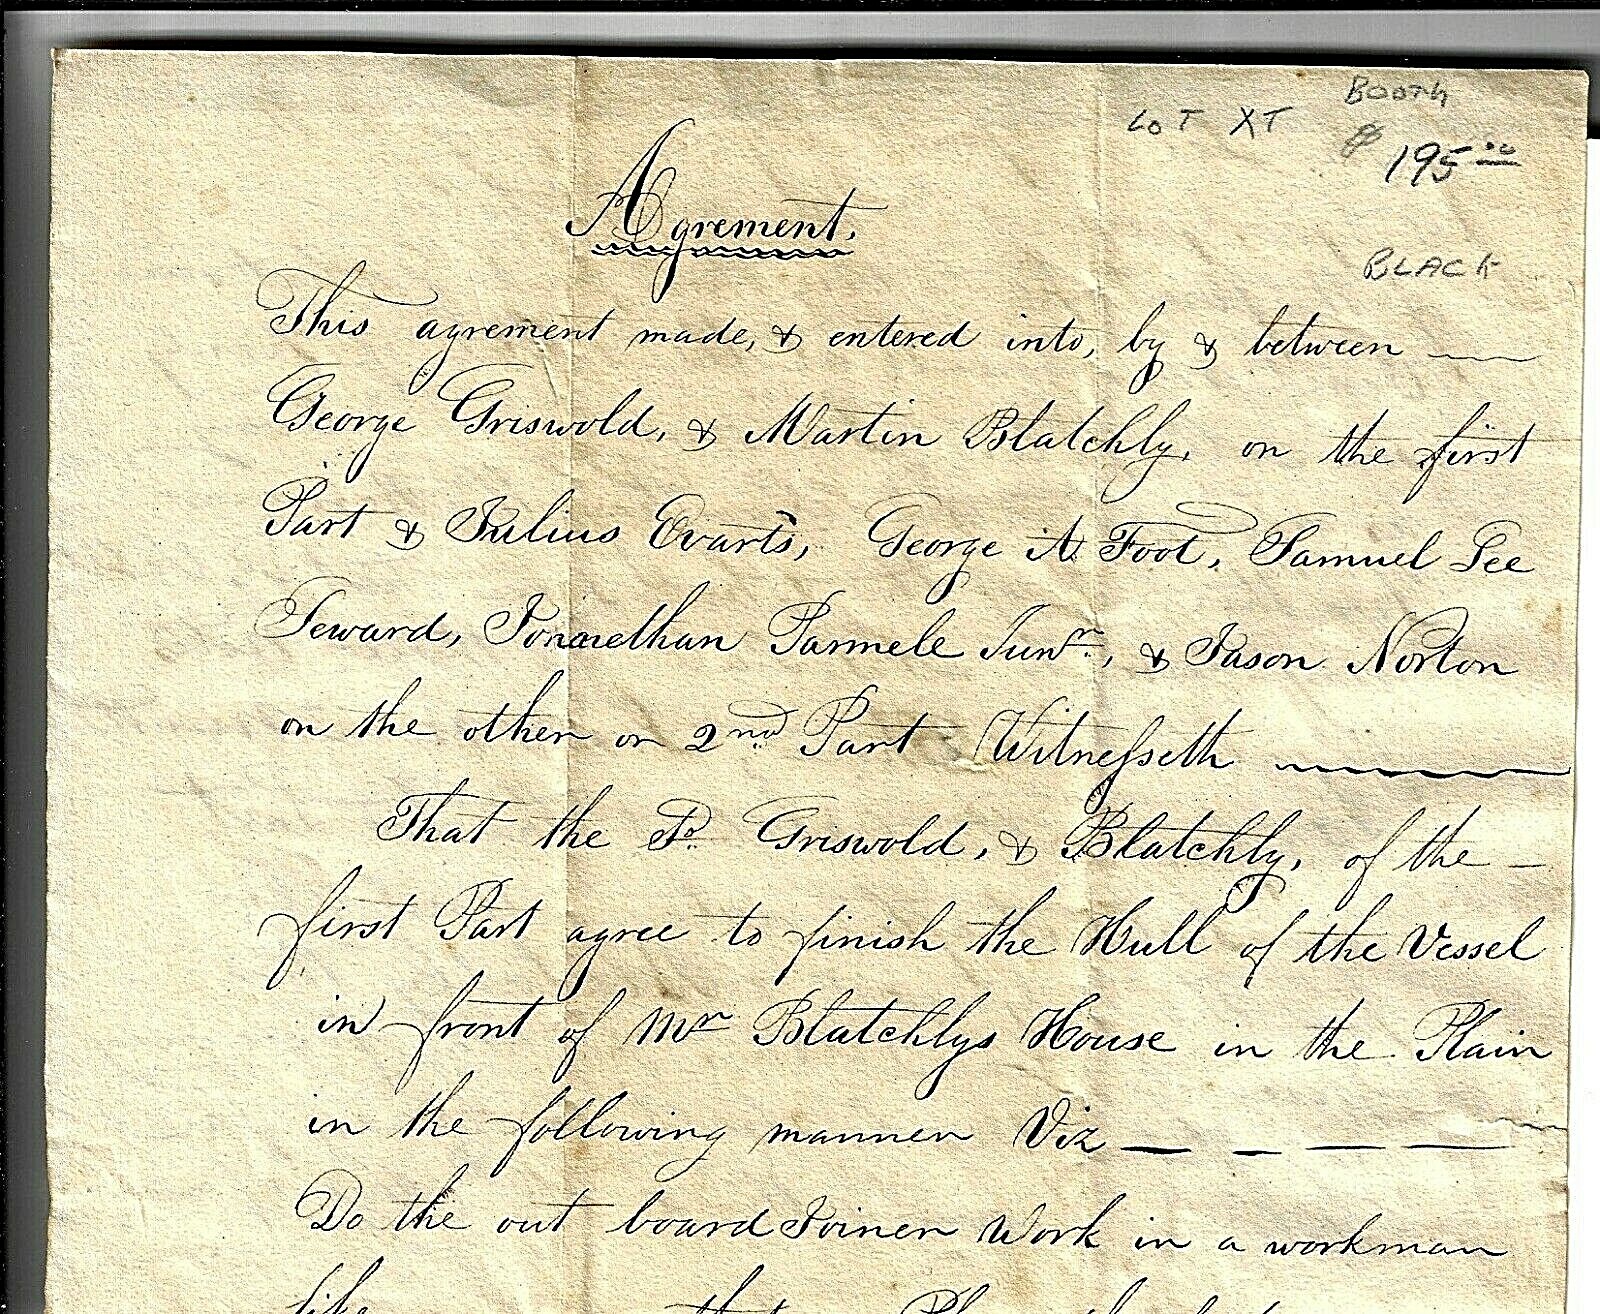 BOOTH
LOT XT
$ 195.00
Agrement.
BLACK
This agrement made, & entered into, by & between
George Griswold, & Martin Blatchly, on the first
Part & Julius Evarts, George A Foot, Samuel Lee
Seward, Jonaethan Parmele Junr., & Jason Norton
on the other or 2nd. Part Witneſseth
That the Sd. Griswold, & Blatchly, of the
first Part agree to finish the Hull of the Vessel
in front of Mr Blatchlys House in the Plain
in the following manner Viz
Do the out board Joiner Work in a workman
like